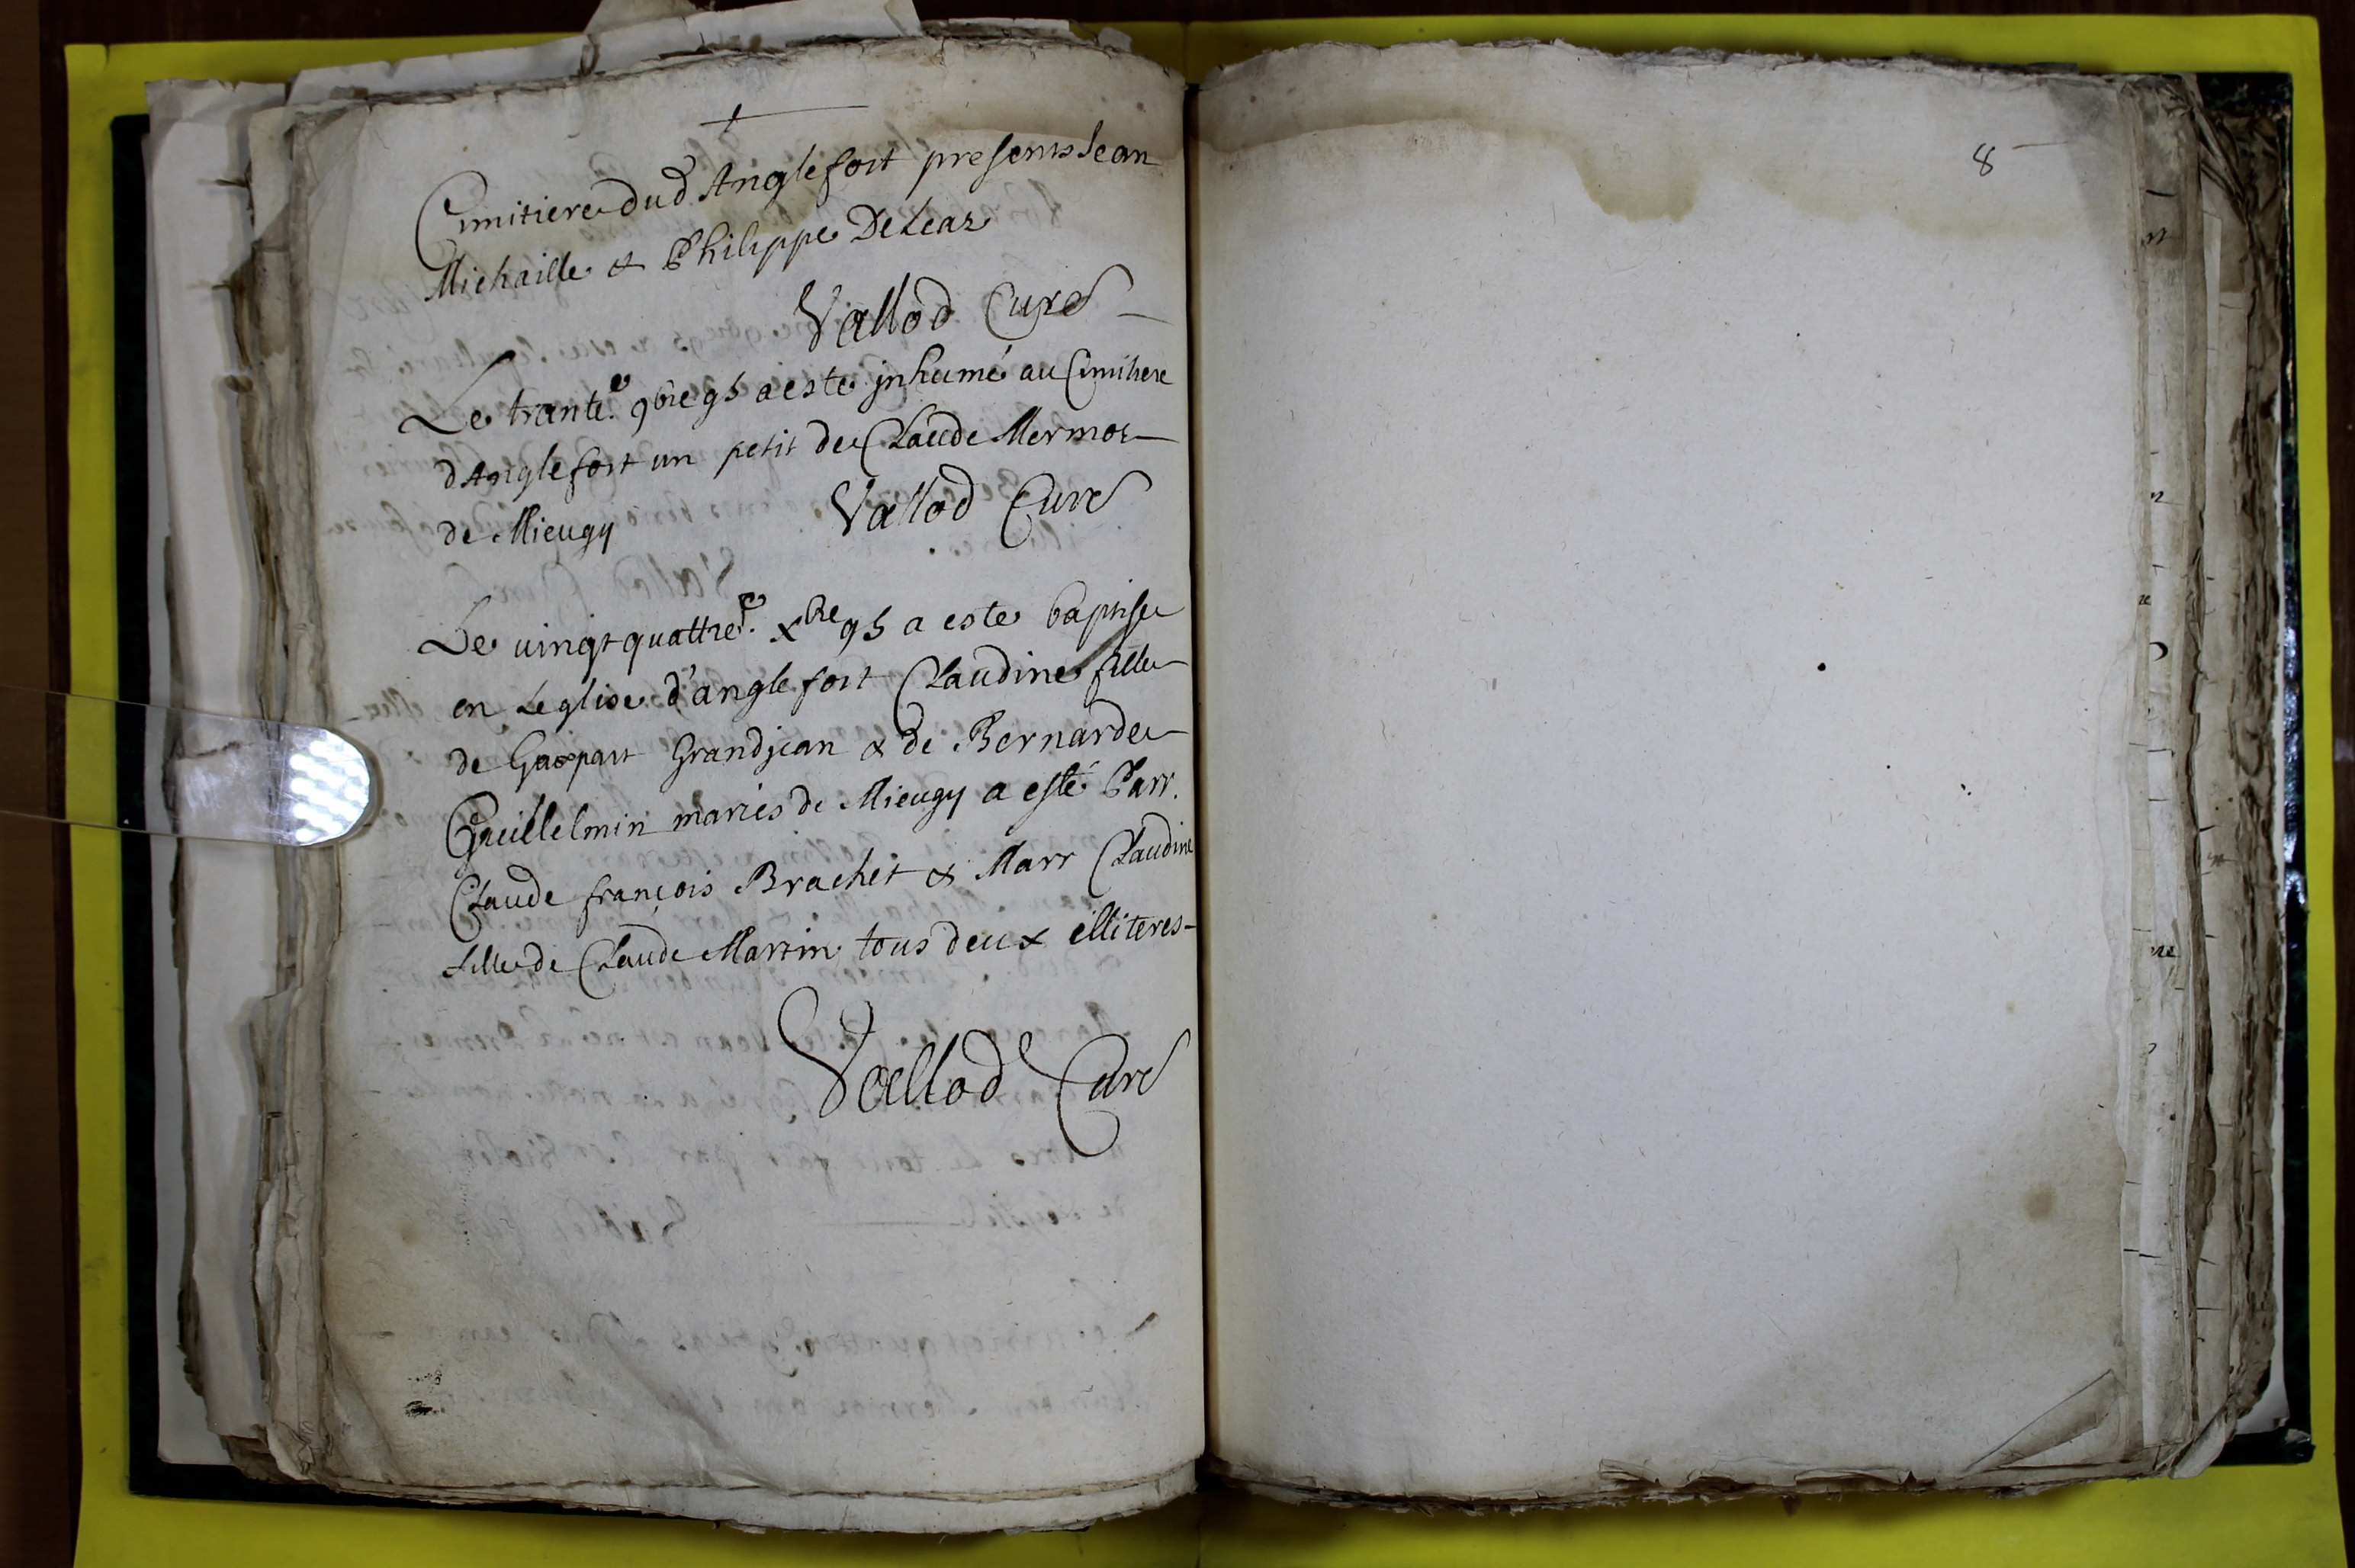 Cimitiere dud Anglefort presents Jean
Michaille & Philippe De Leaz
Vallod Curé
Le trante.e 9bre 95 a este inhumé au Cimitiere
d'Anglefort un petit de Claude Mermoz
de Mieugy Vallod Curé
Le vingt quattre.e xbre 95 a este baptisee
en Leglise d'anglefort Claudine fille
de Gaspart Grandjean & de Bernarde
Guillelmin mariés de Mieugy a esté Parr.
Claude françois Brachet & Marr Claudine
fille de Claude Martin tous deux illiteres
Vallod Curé
8